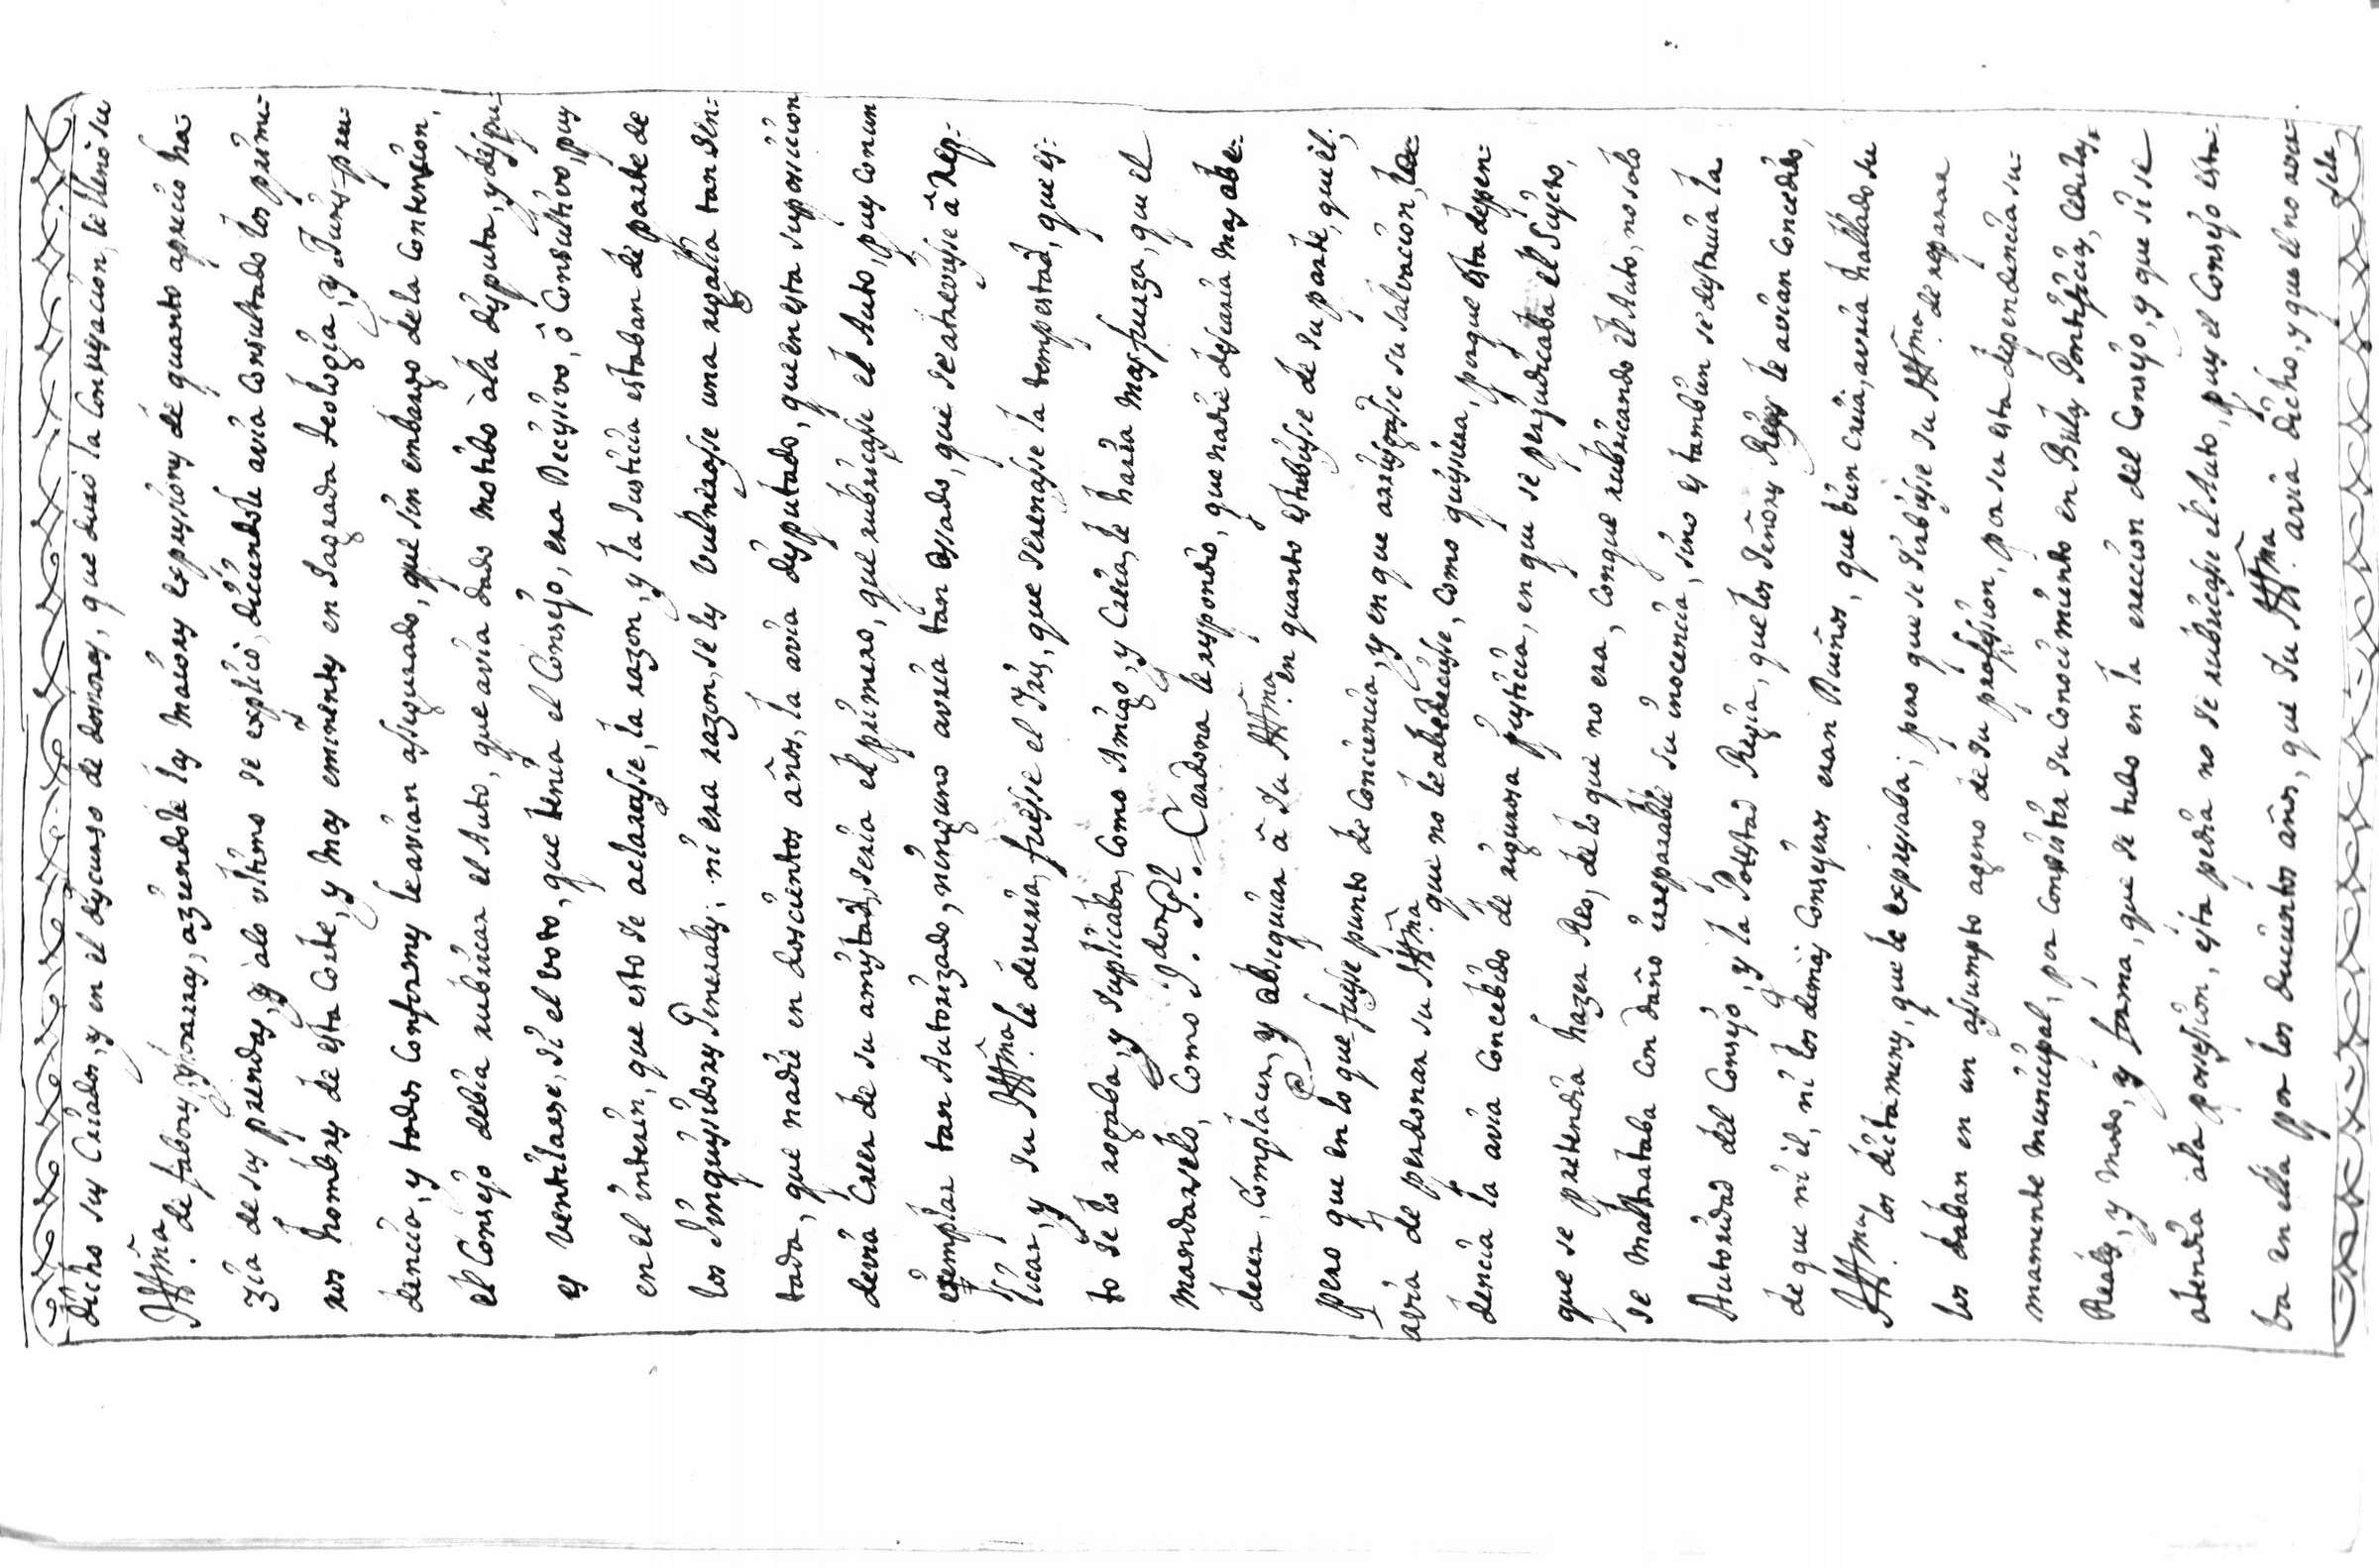 dicho sus Criados, y en el discurso de dos horas, que duró la Conversacion, le llenó su
Illma. de fabores, y honrras, aziendole las maiores expresiones de quanto aprecio ha-
zia de sus prendas, y alo ultimo se explicò, diciendole avia consultado los prime-
ros hombres de esta Corte, y mas eminentes en Sagrada Teologia, y Juris-pru-
dencia, y todos Conformes le avian assegurado, que sin embargo de la Contencion,
el Consejo debia rubricar el Auto, que avia dado motibo àla disputa, y despues
es ventilarse, si el voto, que tenia el Consejo, era Decissivo, ô Consultivo, pues
en el interin, que esto se aclarasse, la razon, y la Justicia estaban de parte de
los Inquisidores Generales; ni era razon, se les vulnerasse una regalia tan sen-
tada, que nadie en doscientos años, la avia disputado, que en esta suposicion
devia Creer de su amistad, seria el primero, que rubricasse el Auto, pues con un
exemplar tan Autorizado, ninguno avria tan ossado, que se atreviesse â rep-
licar, y su Illma. le deveria, fuesse el Iris, que serenasse la tempestad, que es-
to se lo rogaba, y suplicaba, como Amigo, y Creia, le haria mas fuerza, que el
mandarselo, Como I. G. Cardona le respondio, que nadie desearia mas obe-
decer, Complacer, y obsequiar â su Illma. en quanto estubiesse de su parte, que èl;
pero que en lo que fuesse punto de Conciencia, y en que arriesgasse su salvacion,
avia de perdonar su Illma. que no le obedeciesse, como quisiera, porque esta depen-
dencia la avia Concebido de rigurosa justicia, en que se perjudicaba el Sujeto,
que se pretendia hazer Reo, de lo que no era, conque rubricando el Auto, no solo
se maltrataba con daño irreparable su inocencia, sino es tambien se destruia la
Autoridad del Consejo, y la Potestad Regia, que los Señores Reyes le avian concedido,
de que ni èl, ni los demas Consejeros eran Dueños, que bien Creia, avria hallado su
Illma. los dictamenes, que le expresaba; pero que se sirbiesse su Illma. de reparar
los daban en un assumpto ageno de su profession, por ser esta dependencia su-
mamente municipal, por consistir su Conocimiento en Bulas Pontificias, Cedulas
Reales, y modo, y forma, que se tubo en la ereccion del Consejo, y que si se
atendia ala possession, esta pedia no se rubricasse el Auto, pues el Consejo esta-
ba en ella por los ducientos años, que su Illma. avia dicho, y que el no
sela